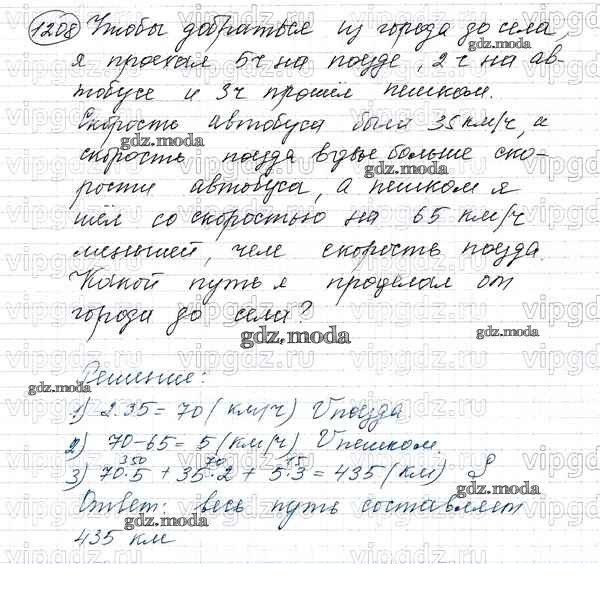 1208 Чтобы добраться из города до села,
я проехал 5ч на поезде, 2ч на ав-
тобусе и 3ч прошёл пешком.
Скорость автобуса была 35 км/ч, а
скорость поезда вдвое больше ско-
рости автобуса, а пешком я
шёл со скоростью на 65 км/ч
меньшей, чем скорость поезда.
Какой путь я проделал от
города до села?
gdz.moda
Решение:
1) 2·35 = 70 (км/ч) V поезда
2) 70-65 = 5 (км/ч) V пешком.
350 70 15
3) 70·5 + 35·2 + 5·3 = 435 (км) S
Ответ: весь путь составляет
435 км